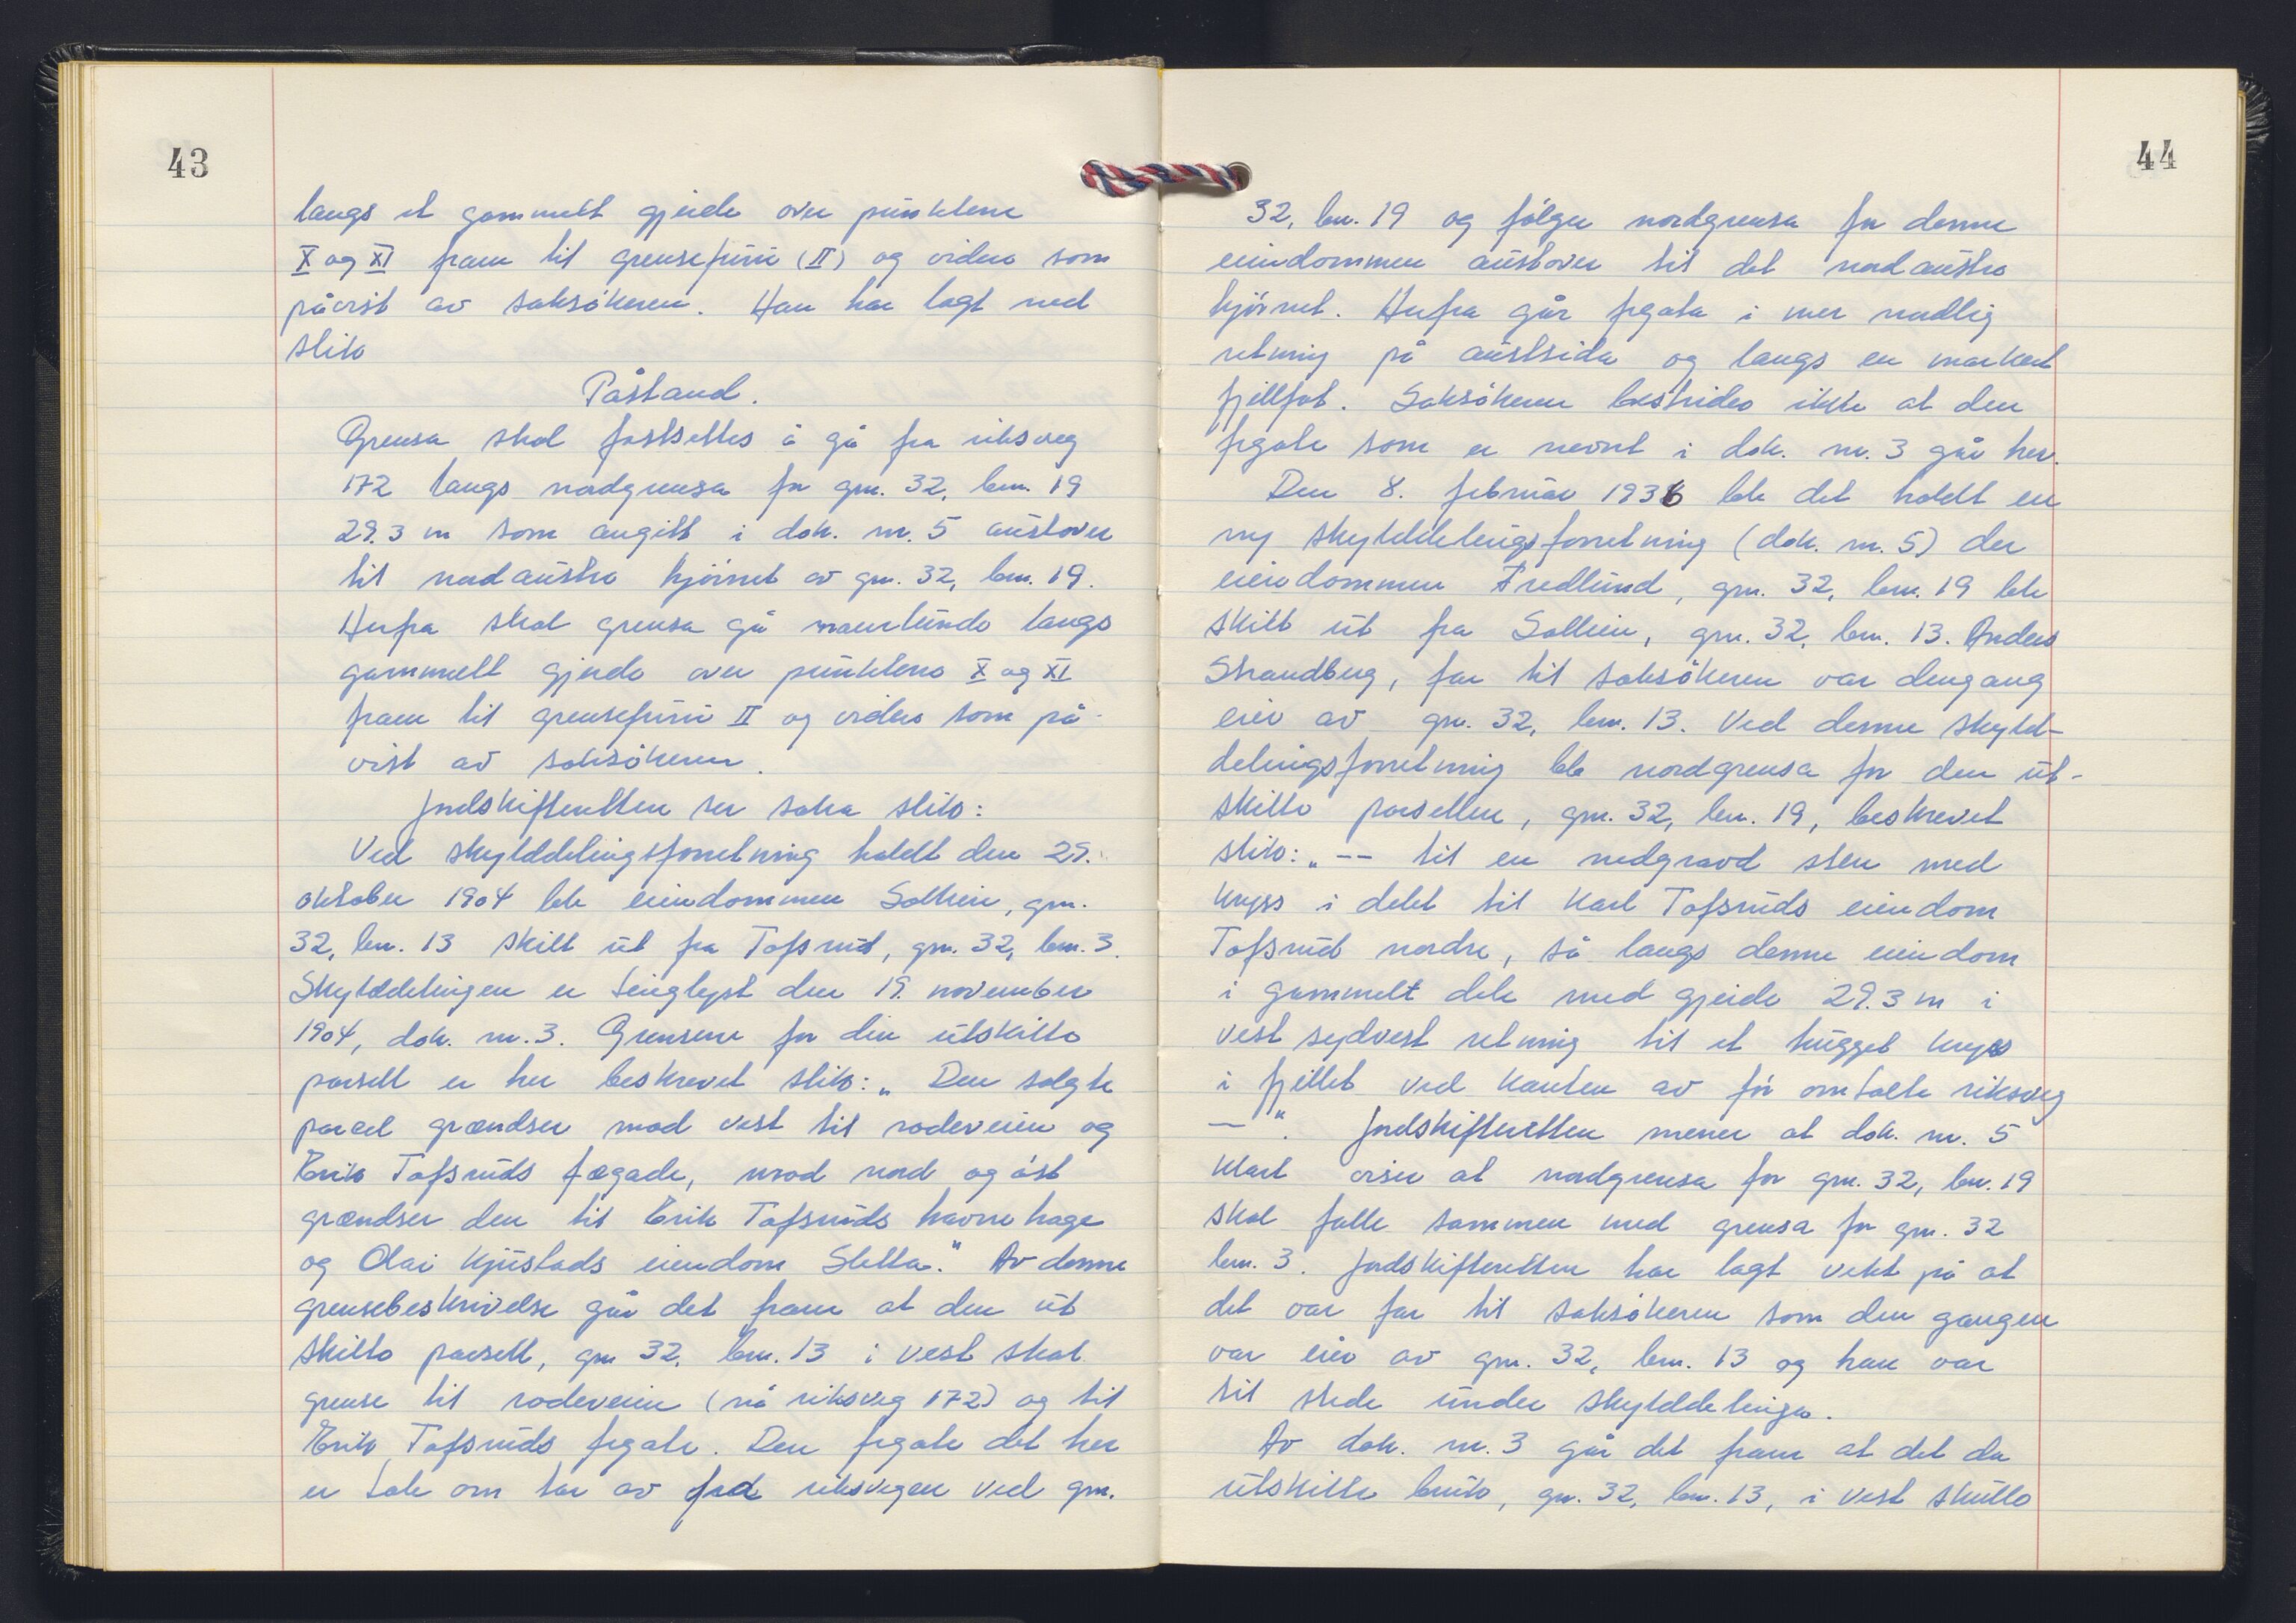 43
langs et gammelt gjerde over punktene
X og XI fram til grensefuru (II) og videre som
påvist av saksökeren. Han har lagt ned
slik
Påstand.
Grensa skal fastsettes å gå fra riksveg
172 langs nordgrensa for gnr. 32, bnr. 19
29.3 m som angitt i dok. nr. 5 austover
til nordaustre hjörnet av gnr. 32, bnr. 19.
Herfra skal grensa gå langs
gammelt gjerde over punktene X og XI
fram til grensefuru II og videre som på-
vist av saksökeren.
Jordskifteretten ser saka slik:
Ved skylddelingsforretning holdt den 29.
oktober 1904 ble eiendommen Solheim, gnr.
32, bnr. 13 skilt ut fra Tofsrud, gnr. 32, bnr. 3.
Skylddelingen er tinglyst den 19. november
1904, dok. nr. 3. Grensene for den utskilte
parsell er her beskrevet slik: „Den solgte
parcel grændser mod vest til rodeveien og
Erik Tofsruds fægade, mod nord og öst
grændser den til Erik Tofsruds havnehage
og Olai Kjustads eiendom Sletta." Av denne
grensebeskrivelse går det fram at den ut
skilte parsell, gnr 32, bnr. 13 i vest skal
grense til rodeveien (nå riksveg 172) og til
Erik Tofsruds fegate. Den fegate det her
er tale om tar av fra riksvegen ved gnr.
44
32, bnr. 19 og fölger nordgrensa for denne
eiendommen austover til det nordaustre
hjörnet. Herfra går fegata i mer nordlig
retning på austsida og langs en markert
fjellfot. Saksökeren bestrider ikke at den
fegate som er nevnt i dok. nr. 3 går her.
Den 8. februar 1936 ble det holdt en
ny skylddelingsforretning (dok. nr. 5) der
eiendommen Fredlund, gnr. 32, bnr. 19 ble
skilt ut fra Solheim, gnr. 32, bnr. 13. Anders
Strandberg, far til saksökeren var dengang
eier av gnr. 32, bnr. 13. Ved denne skyld-
delingsforretning ble nordgrensa for den ut-
skilte parsellen, gnr. 32, bnr. 19, beskrevet
slik: „-- til en nedgravd sten med
kryss i delet til Karl Tofsruds eiendom
Tofsrud nordre, så langs denne eiendom
i gammelt dele med gjerde 29.3 m i
vest sydvest retning til et hugget kryss
i fjellet ved kanten av för omtalte riksveg
—". Jordskifteretten mener at dok. nr. 5
klart viser at nordgrensa for gnr. 32, bnr. 19
skal falle sammen med grensa for gnr. 32
bnr. 3. Jordskifteretten har lagt vekt på at
det var far til saksökeren som den gangen
var eier av gnr. 32, bnr. 13 og han var
til stede under skylddelinga.
Av dok. nr. 3 går det fram at det da
utskilte bruk, gnr. 32, bnr. 13, i vest skulle